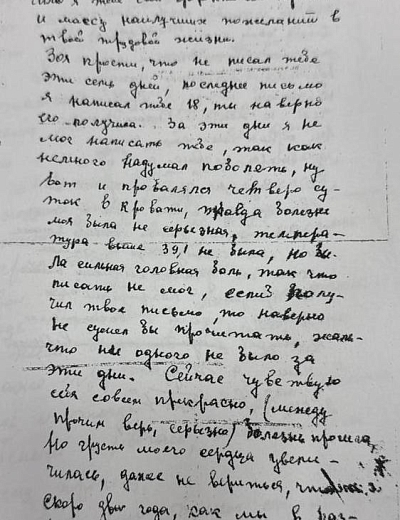 и массу наилучших пожеланий в
твоей трудовой жизни.
Зоя прости, что не писал тебе
эти семь дней, последнее письмо
я написал тебе 18, ты наверно
его получила. За эти дни я не
мог написать тебе, так как
немного надумал поболеть, ну
вот и провалялся четверо су-
ток в кровати, правда болезнь
моя была не серьезная, темпера-
тура выше 39,1 не была, но бы-
ла сильная головная боль, так что
писать не мог, если б полу-
чил твое письмо, то наверно
не сумел бы прочитать, жаль
что ни одного не было за
эти дни. Сейчас чувствую
себя совсем прекрасно, (между
прочим верь, серьезно) болезнь прошла
но грусть моего сердца увели-
чилась, даже не вериться, что
скоро два года, как мы в раз-